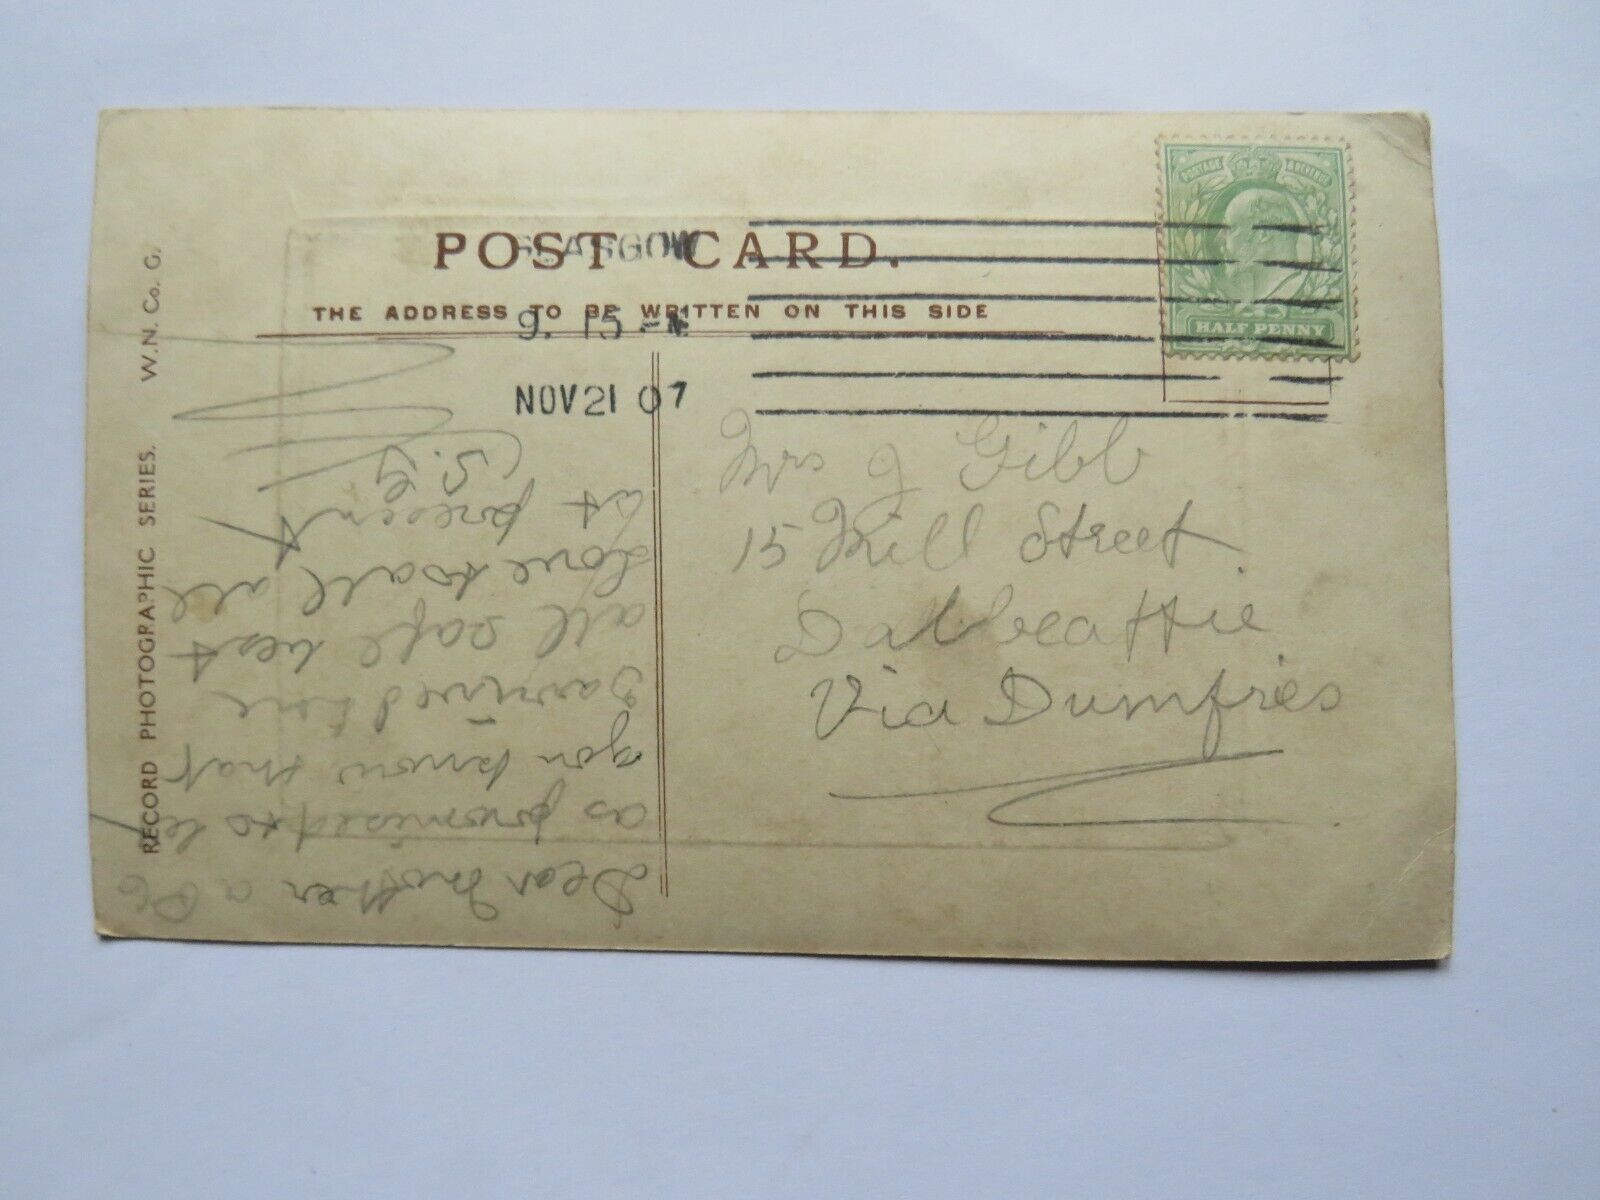 POST CARD.
THE ADDRESS TO BE WRITTEN ON THIS SIDE
GLASGOW
9. 15
NOV 21 07
POSTAGE & REVENUE
HALF PENNY
Mrs J Gibb
15 Mill Street
Dalbeattie
Via Dumfries
Dear Mother a PC
as promised to let
you know that
I arrived here
all safe best
love to all at
at present
J.G.
RECORD PHOTOGRAPHIC SERIES. W.N. Co. G.